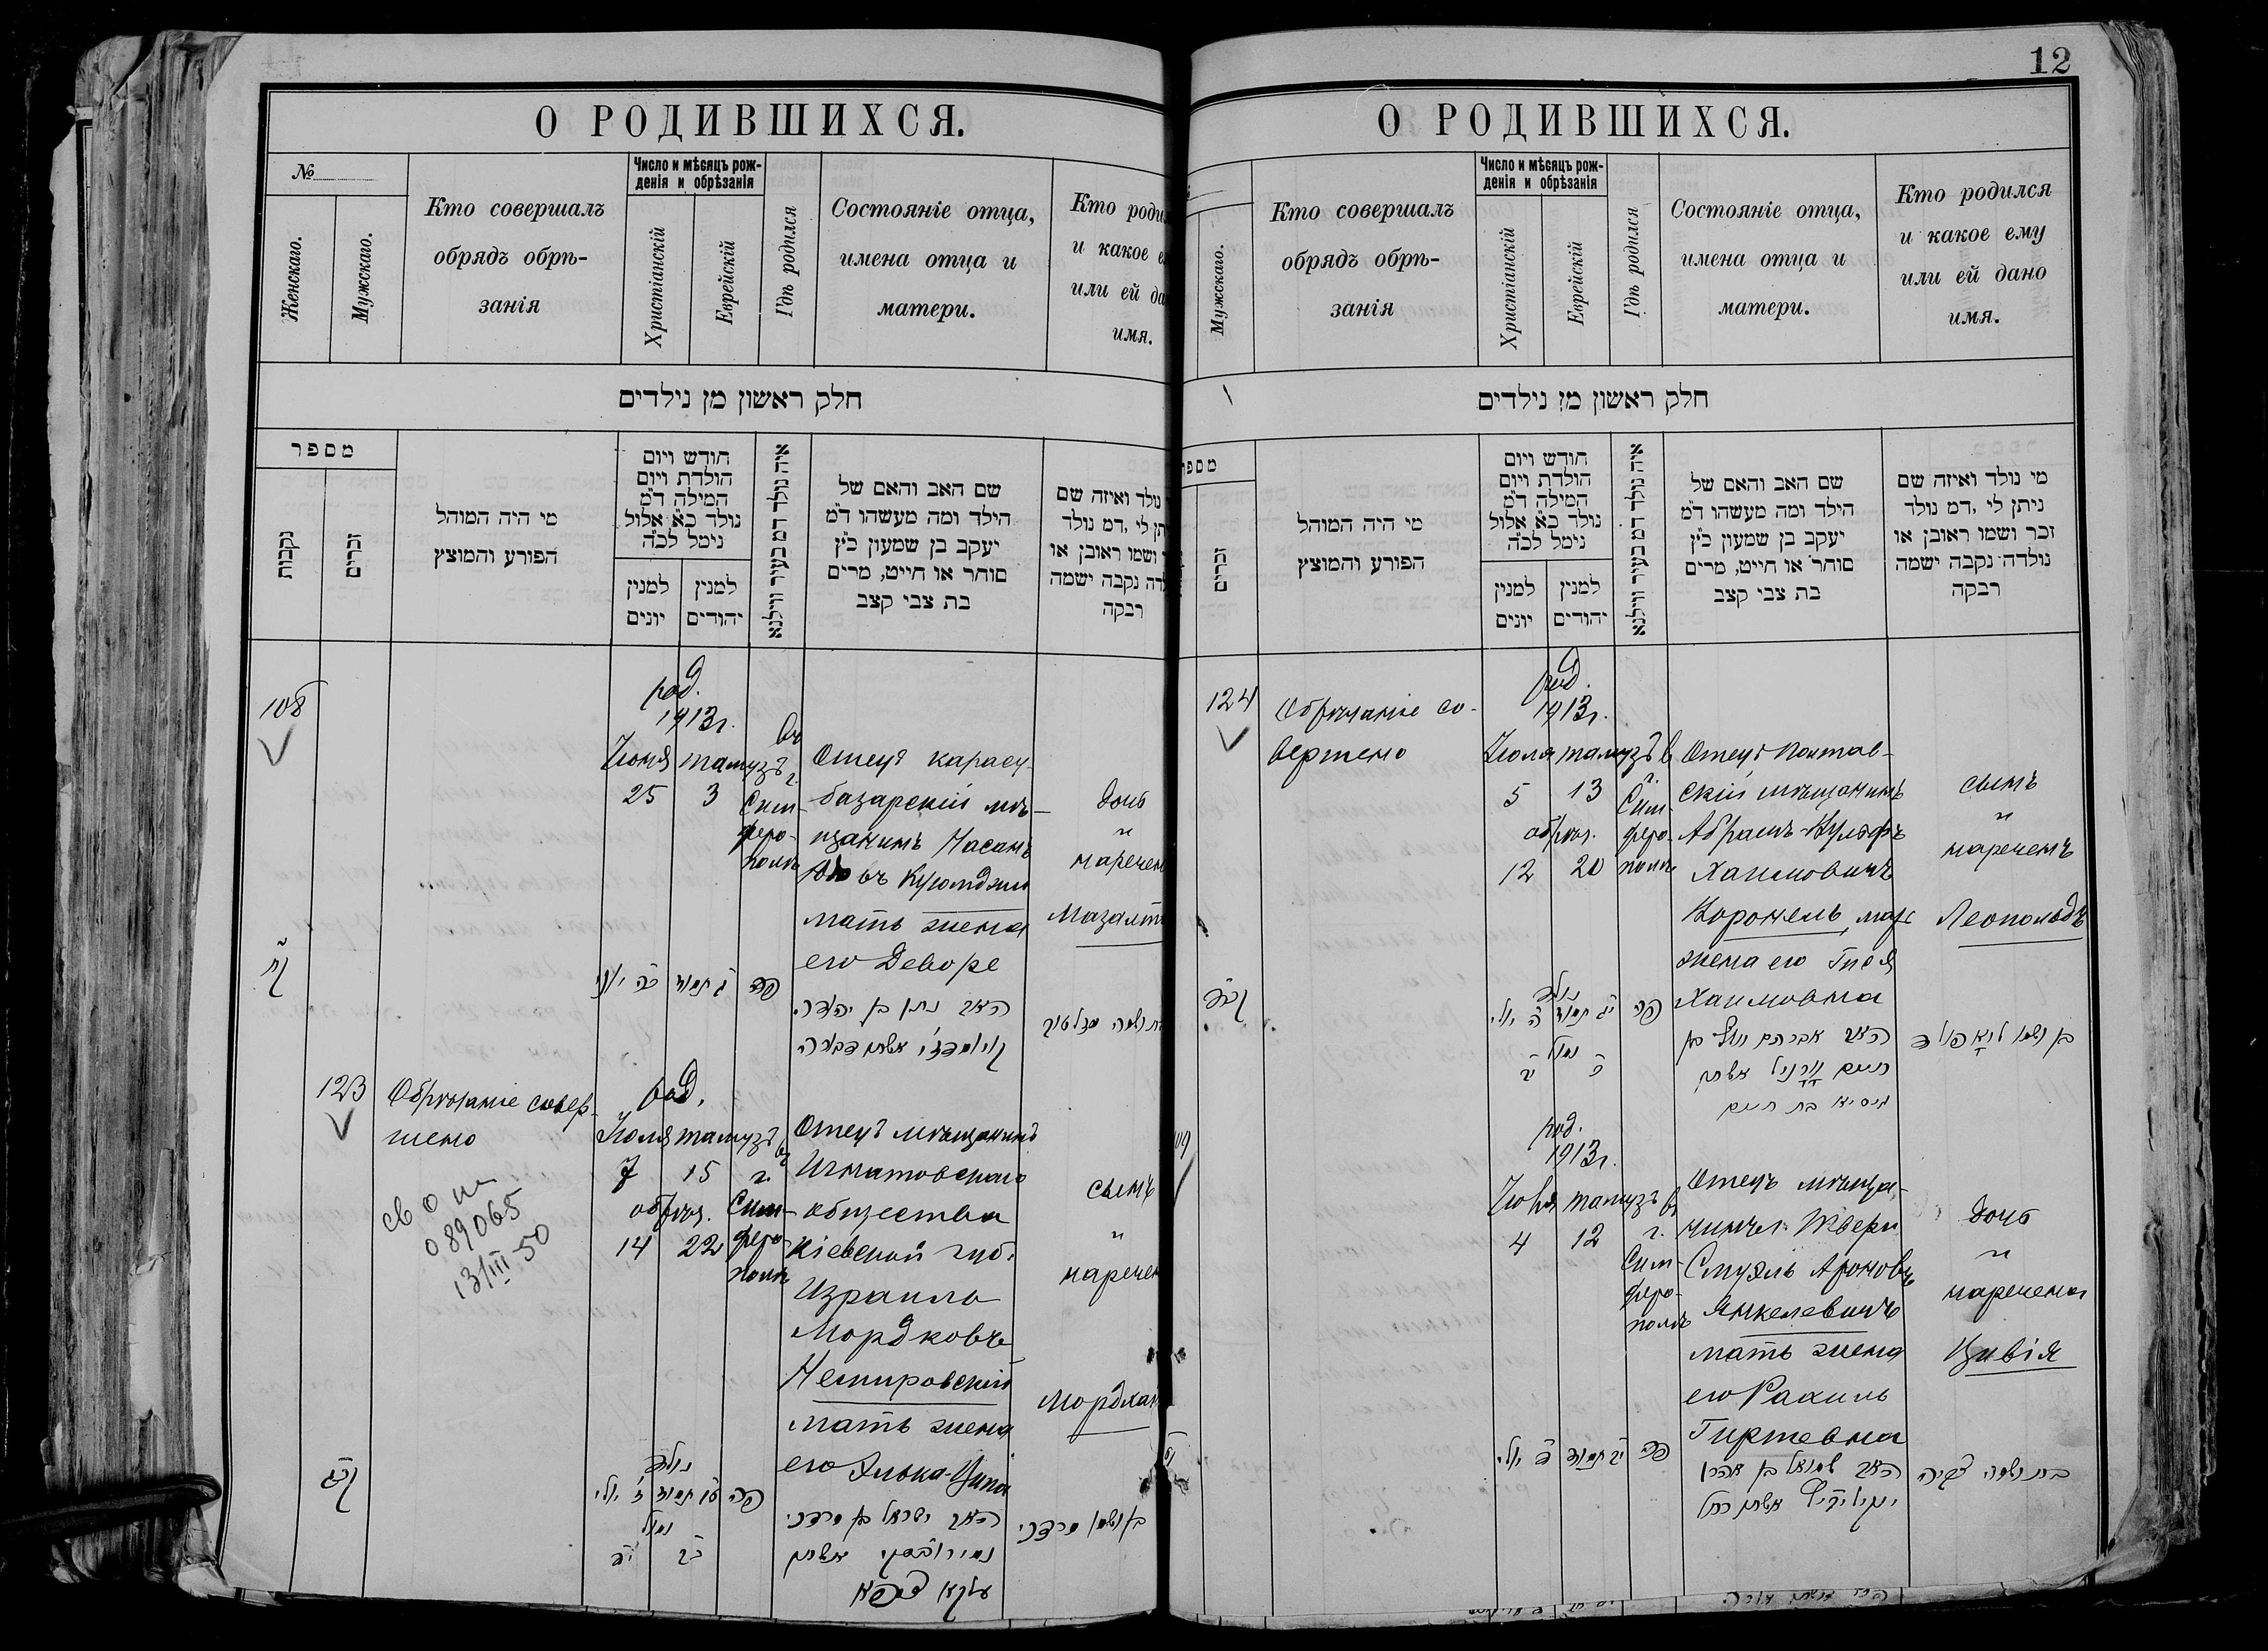 О РОДИВШИХСЯ.
№
Женскаго.
Мужскаго.
Кто совершалъ
обрядъ обрѣ-
занія
Число и мѣсяцъ рож-
денія и обрѣзанія
Христіанскій
Еврейскій
Гдѣ родился
Состояніе отца,
имена отца и
матери.
Кто роди
и какое е
или ей да
имя.
חלק ראשון מן נילדים
מספר
נקבות
זכרים
מי היה המוהל
הפורע והמוצץ
חודש ויום
הולדת ויום
המילה ד״מ
נולד כ״א אלול
נימל לכ״ה
למנין
יונים
למנין
יהודים
איה נולד דמ בעיר ווילנא
שם האב והאם של
הילד ומה מעשהו ד״מ
יעקב בן שמעון כ״ץ
סוחר או חייט, מרים
בת צבי קצב
נולד ואיזה שם
תן לי, דמ נולד
ושמו ראובן או
לדה נקבה ישמה
רבקה
108
род.
1913 г.
Іюня
тамузъ
въ
г.
25
3
Сим-
феро-
полѣ
Отецъ карасу-
базарскій мѣ-
щанинъ Насанъ
Куюмджи
мать жена
его Деворе
дочь
и
наречен
Мазалт
האב נתן בן יהודה
123
Обрѣзаніе совер-
шено
род.
Іюля тамузъ
въ
7
15
г.
обрѣз.
14
22
Сим-
феро-
полѣ
Отецъ мѣщанинъ
Игнатовскаго
общества
Кіевской губ.
Израиль
Мордковъ
Немировскій
мать жена
его Элька-Ципа
сынъ
и
наречен
Мордхай
св о ш
089065
13/III 50
האב ישראל בן מרדכי
בן ושמו מרדכי
12
О РОДИВШИХСЯ.
Мужскаго.
Кто совершалъ
обрядъ обрѣ-
занія
Число и мѣсяцъ рож-
денія и обрѣзанія
Христіанскій
Еврейскій
Гдѣ родился
Состояніе отца,
имена отца и
матери.
Кто родился
и какое ему
или ей дано
имя.
חלק ראשון מן נילדים
מספר
זכרים
מי היה המוהל
הפורע והמוצץ
חודש ויום
הולדת ויום
המילה ד״מ
נולד כ״א אלול
נימל לכ״ה
למנין
יונים
למנין
יהודים
איה נולד דמ בעיר ווילנא
שם האב והאם של
הילד ומה מעשהו ד״מ
יעקב בן שמעון כ״ץ
סוחר או חייט, מרים
בת צבי קצב
מי נולד ואיזה שם
ניתן לי, דמ נולד
זכר ושמו ראובן או
נולדה נקבה ישמה
רבקה
124
Обрѣзаніе со-
вершено
род.
1913 г.
Іюля тамузъ
въ
5
13
г.
обрѣз.
12
20
Сим-
феро-
полѣ
Отецъ полтав-
скій мѣщанинъ
Абрамъ-Вульфъ
Хаимовичъ
Коронель, мать
жена его Гися
Хаимовна
сынъ
и
нареченъ
Леопольдъ
האב אברהם וואלף בן
חיים קורניל אשתו
בת חיים
בן ושמו ליאפולד
род.
1913 г.
Іюля тамузъ
въ
4
12
г.
Сим-
феро-
полѣ
Отецъ мѣща-
нинъ г. Твери
Смуэль Ароновъ
Янкелевичъ
мать жена
его Рахиль
Гиршевна
дочь
и
наречена
Цивія
האב שמואל בן אהרן
ינקילוביץ אשתו רחל
בת ושמה צביה